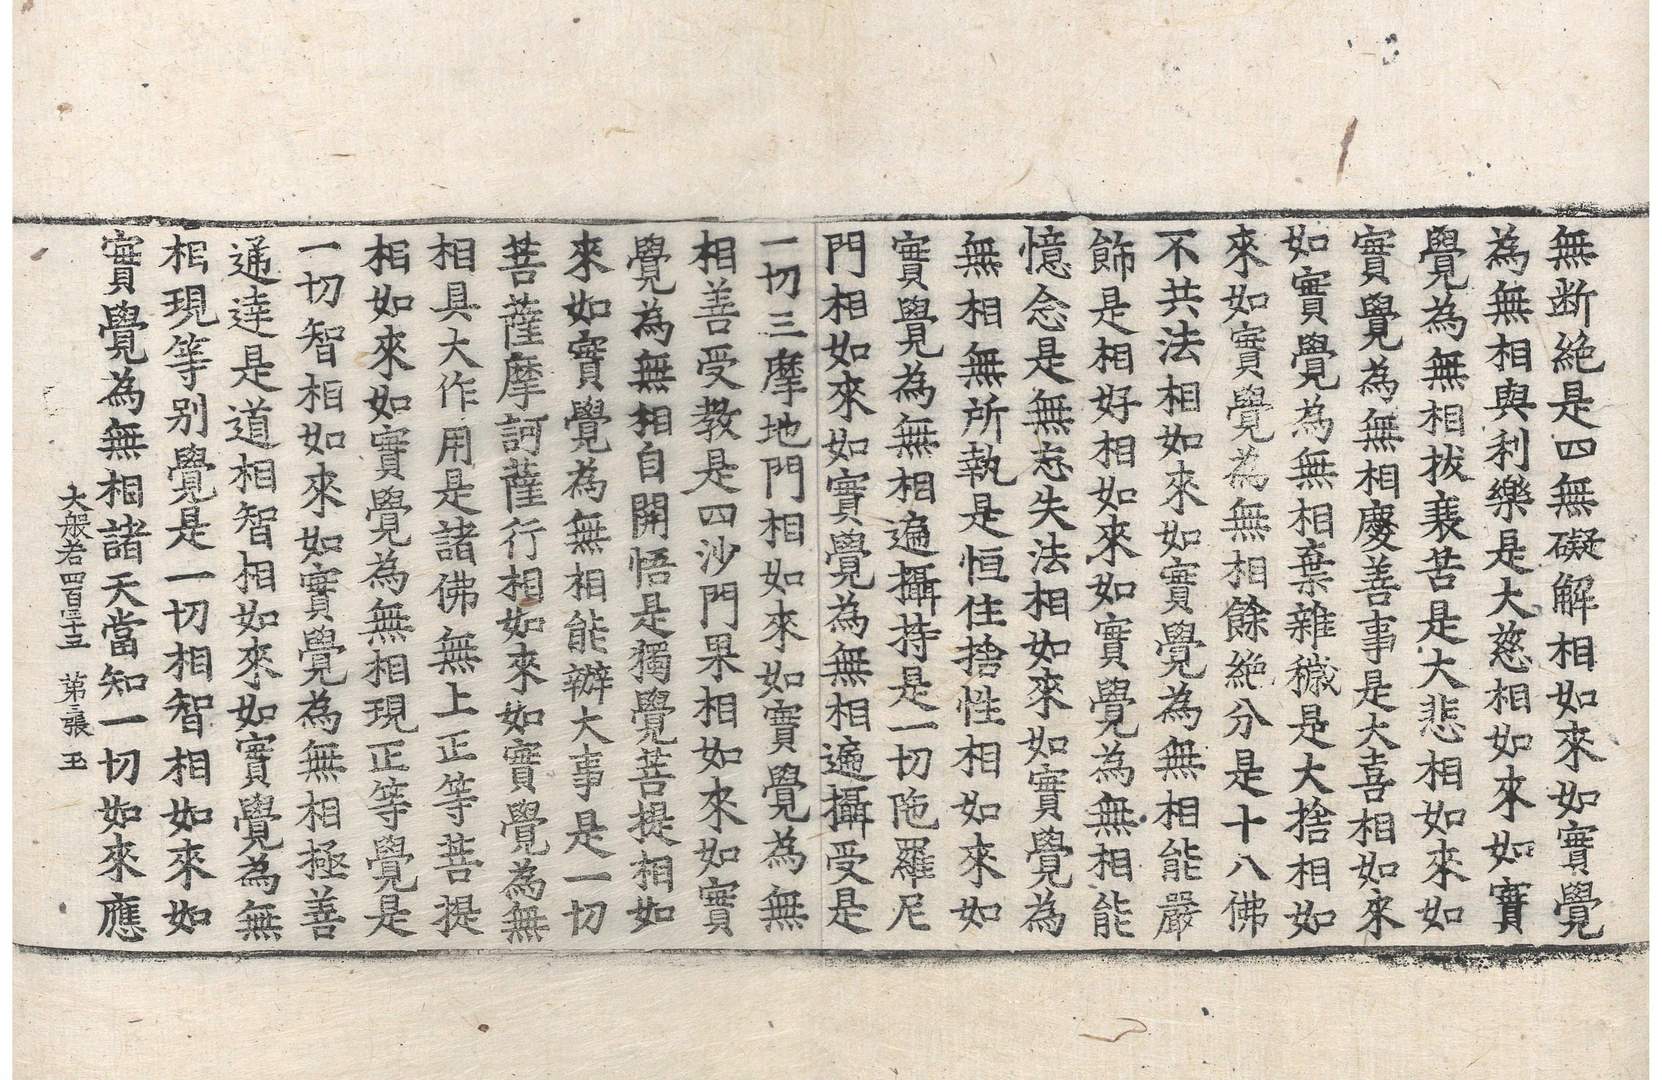 無断絶是四無礙解相如來如實覺
為無相與利樂是大慈相如來如實
覺為無相拔衰苦是大悲相如來如
實覺為無相慶善事是大喜相如來
如實覺為無相棄雜穢是大捨相如
來如實覺為無相餘絶分是十八佛
不共法相如來如實覺為無相能嚴
飾是相好相如來如實覺為無相能
憶念是無忘失法相如來如實覺為
無相無所執是恒住捨性相如來如
實覺為無相遍攝持是一切陁羅尼
門相如來如實覺為無相遍攝受是
一切三摩地門相如來如實覺為無
相善受教是四沙門果相如來如實
覺為無相自開悟是獨覺菩提相如
來如實覺為無相能辦大事是一切
菩薩摩訶薩行相如來如實覺為無
相具大作用是諸佛無上正等菩提
相如來如實覺為無相現正等覺是
一切智相如來如實覺為無相極善
通達是道相智相如來如實覺為無
相現等別覺是一切相智相如來如
實覺為無相諸天當知一切如來應
大般若 第三張 玉